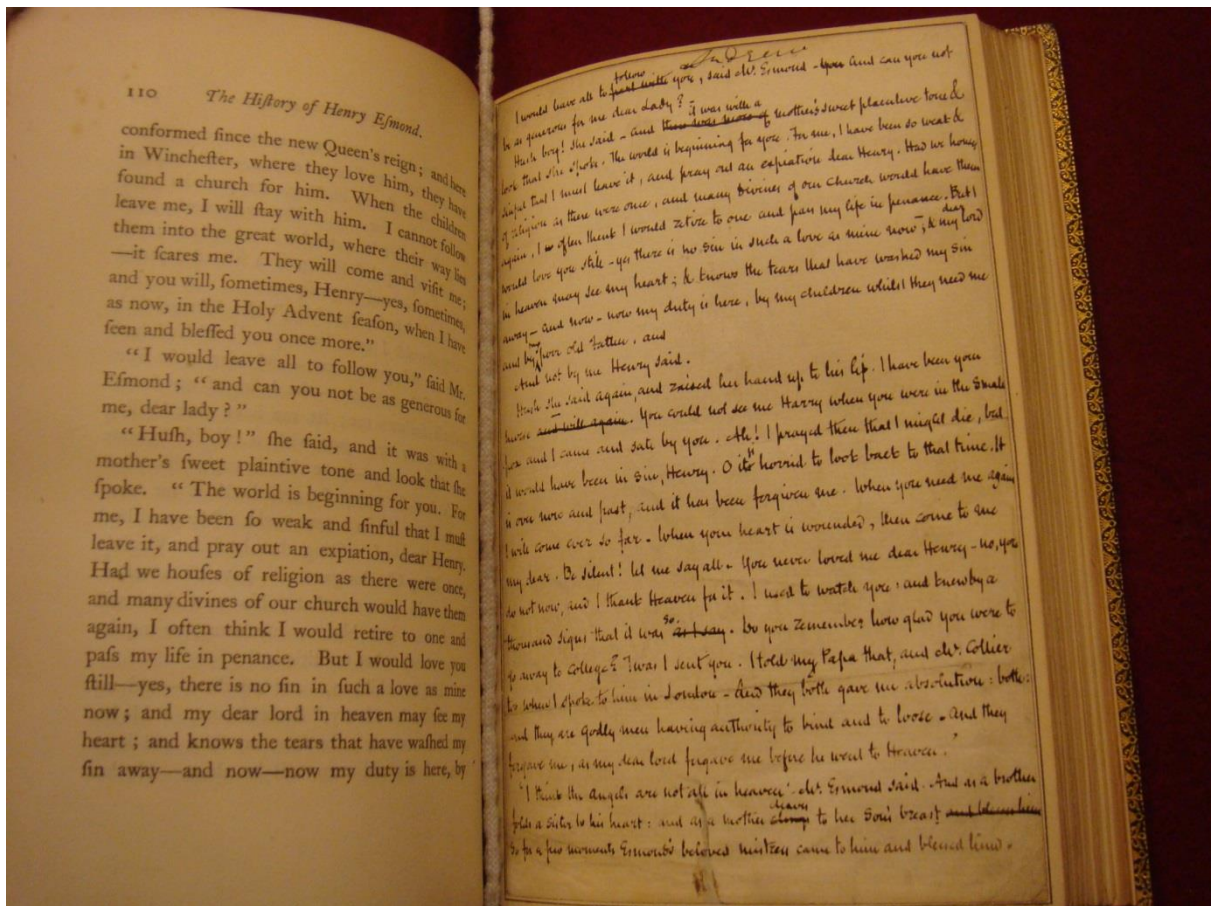 110 The Hiſtory of Henry Eſmond.
conformed ſince the new Queen's reign; and here
in Wincheſter, where they love him, they have
found a church for him. When the children
leave me, I will ſtay with him. I cannot follow
them into the great world, where their way lies
—it ſcares me. They will come and viſit me;
and you will, ſometimes, Henry—yes, ſometimes,
as now, in the Holy Advent ſeaſon, when I have
ſeen and bleſſed you once more."
"I would leave all to follow you," ſaid Mr.
Eſmond; "and can you not be as generous for
me, dear lady?"
"Huſh, boy!" ſhe ſaid, and it was with a
mother's ſweet plaintive tone and look that ſhe
ſpoke. "The world is beginning for you. For
me, I have been ſo weak and ſinful that I muſt
leave it, and pray out an expiation, dear Henry.
Had we houſes of religion as there were once,
and many divines of our church would have them
again, I often think I would retire to one and
paſs my life in penance. But I would love you
ſtill—yes, there is no ſin in ſuch a love as mine
now; and my dear lord in heaven may ſee my
heart; and knows the tears that have waſhed my
ſin away—and now—now my duty is here, by
follow
I would leave all to you, said Mr. Esmond - you and can you not
be as generous for me dear Lady?
it was with a
Hush boy! she said - and there was more of mother's sweet plaintive tone &
look that she spoke. The world is beginning for you. For me, I have been so weak &
sinful that I must leave it, and pray out an expiation dear Henry. Had we houses
of religion as there were once, and many Divines of our Church would have them
again, I often think I would retire to one and pass my life in penance. But I
would love you still - yes there is no sin in such a love as mine now; & my dear Lord
in heaven may see my heart; & knows the tears that have washed my sin
away - and now - now my duty is here, by my children whilst they need me
and by poor old Father, and
And not by me Henry said.
Hush she said again and raised her hand up to his lip. I have been your
nurse and will again. You could not see me Harry when you were in the Small
pox and I came and sate by you. Ah! I prayed then that I might die, but
it would have been in sin, Henry. O it's horrid to look back to that time. It
is over now and past, and it has been forgiven me. When you need me again
I will come ever so far. When your heart is wounded, then come to me
my dear. Be silent! let me say all. You never loved me dear Henry - no, you
do not now, and I thank Heaven for it. I used to watch you: and knew by a
thousand signs that it was so as I say. Do you remember how glad you were to
go away to College? Twas I sent you. I told my Papa that, and Mr. Collier
too when I spoke to him in London - And they both gave me absolution: both:
and they are Godly men having authority to bind and to loose - And they
forgave me, as my dear lord forgave me before he went to Heaven.'
'I think the angels are not all in heaven' Mr. Esmond said. And as a brother
folds a sister to his heart: and as a mother cleaves clings to her Son's breast and blesses him
So for a few moments Esmond's beloved mistress came to him and blessed him.